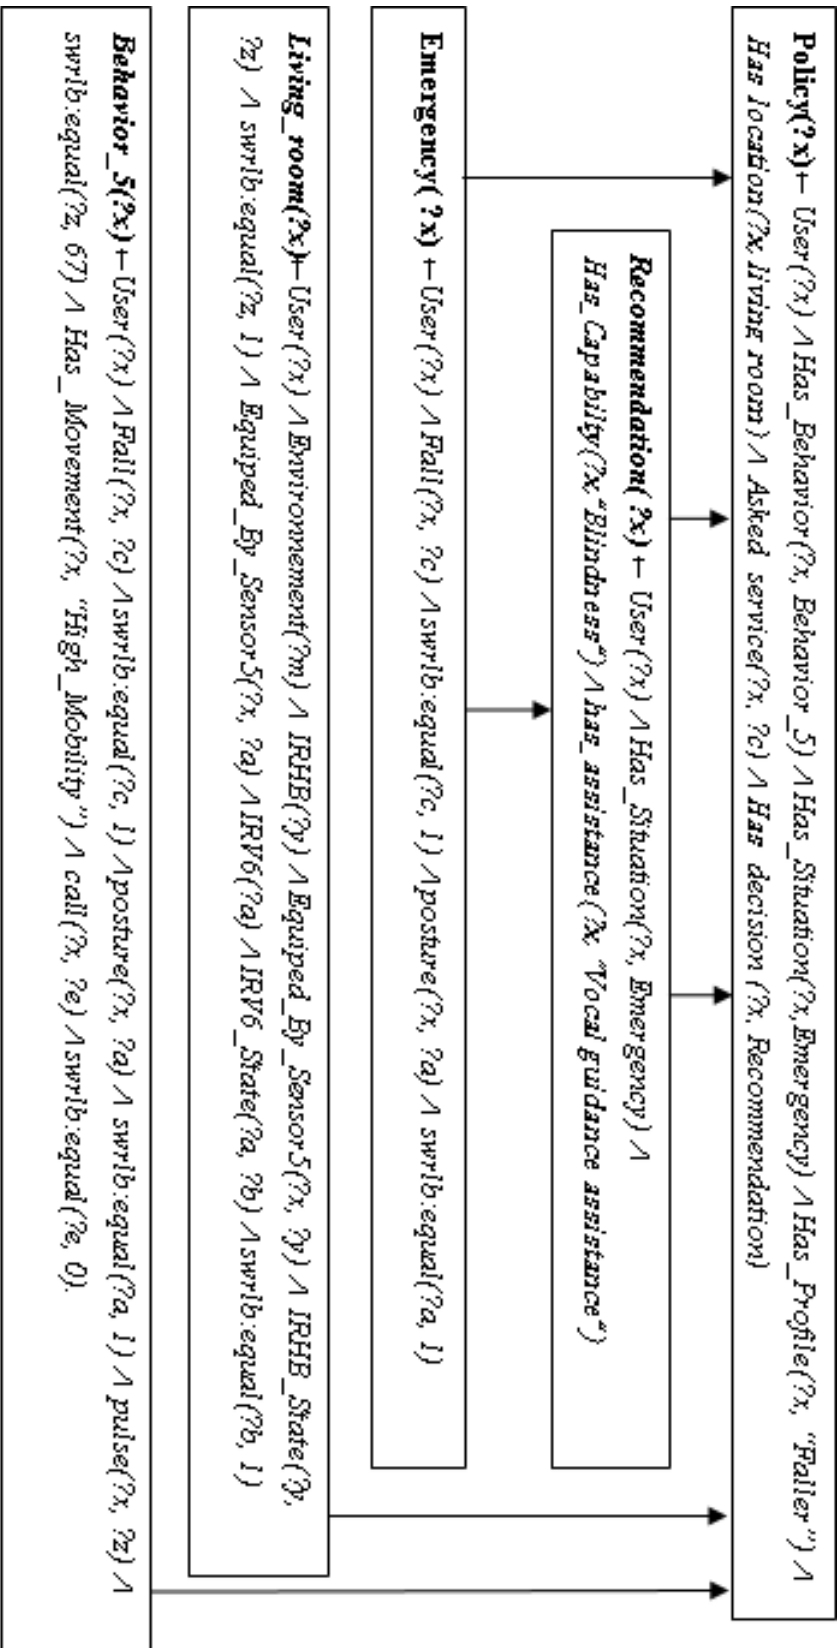 Policy(?x)← User(?x) ∧Has_Behavior(?x, Behavior_5) ∧Has_Situation(?x,Emergency) ∧Has_Profile(?x, “Faller”) ∧
Has location(?x, living room) ∧ Asked service(?x, ?c) ∧Has decision (?x, Recommendation)
Recommendation( ?x)← User(?x) ∧Has_Situation(?x, Emergency) ∧
Has_Capabilty(?x,“Blindness“) ∧has_assistance(?x, “Vocal guidance assistance“)
Emergency( ?x) ←User(?x) ∧Fall(?x, ?c) ∧swrlb:equal(?c, 1) ∧posture(?x, ?a) ∧ swrlb:equal(?a, 1)
Living_room(?x)←User(?x) ∧Environnement(?m) ∧ IRHB(?y) ∧Equiped_By_Sensor5(?x, ?y) ∧ IRHB_State(?y,
?z) ∧ swrlb:equal(?z, 1) ∧ Equiped_By_Sensor5(?x, ?a) ∧IRV6(?a) ∧IRV6_State(?a, ?b) ∧swrlb:equal(?b, 1)
Behavior_5(?x)←User(?x) ∧Fall(?x, ?c) ∧swrlb:equal(?c, 1) ∧posture(?x, ?a) ∧ swrlb:equal(?a, 1) ∧ pulse(?x, ?z) ∧
swrlb:equal(?z, 67) ∧ Has_ Movement(?x, “High_Mobility”) ∧ call(?x, ?e) ∧swrlb:equal(?e, 0).